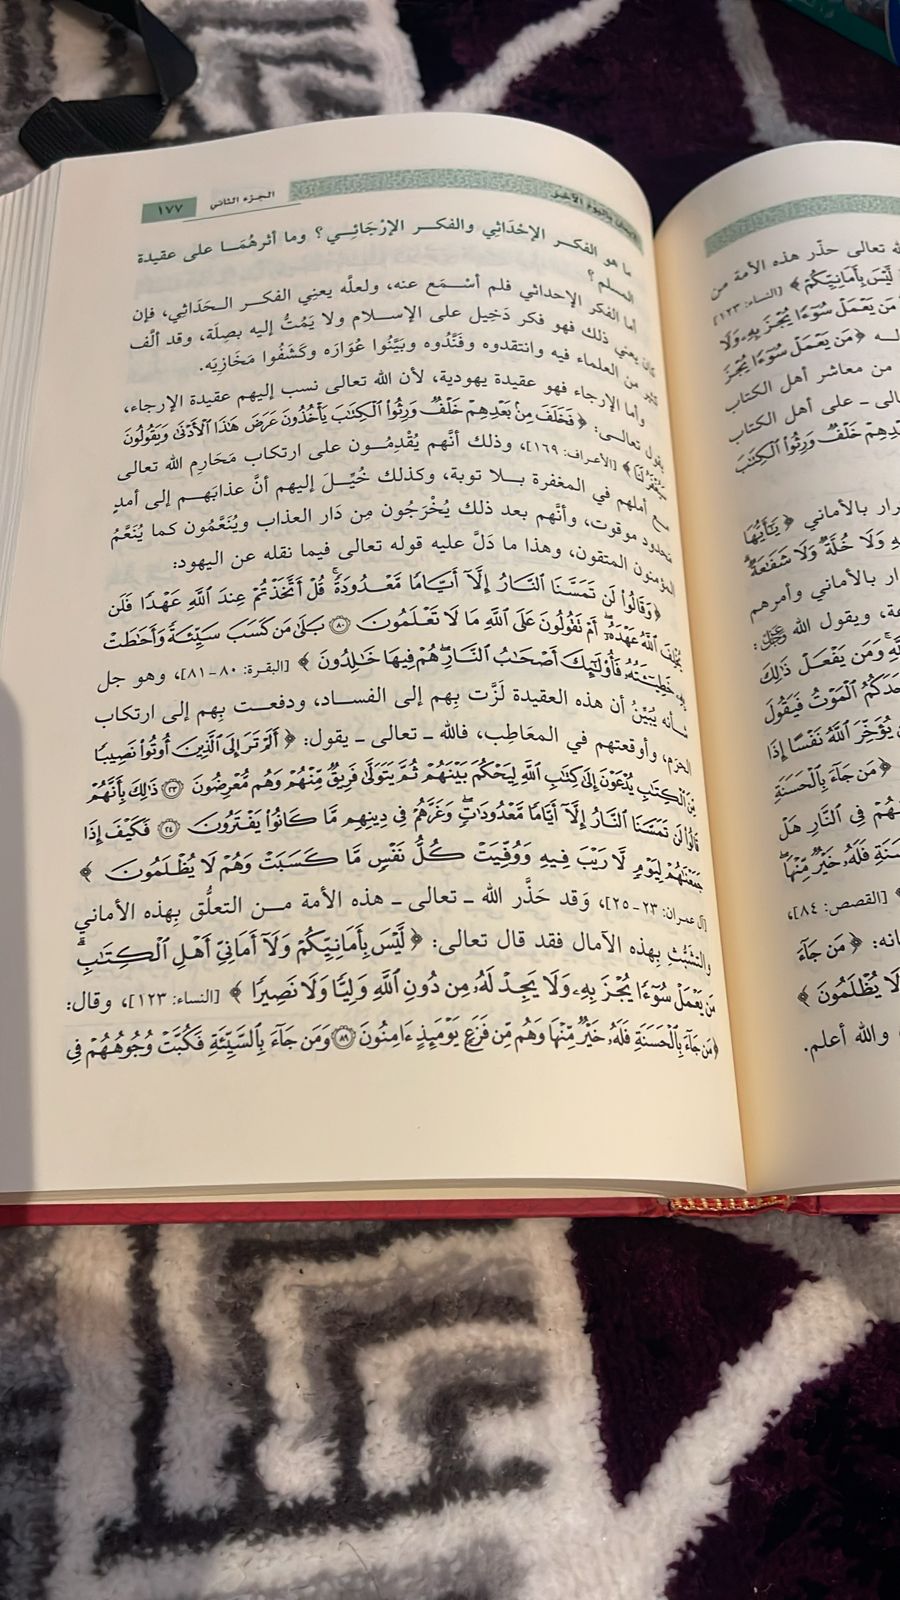 الإيمان باليوم الآخر
الجزء الثاني
١٧٧
ما هو الفكر الإحْدَاثِي والفكر الإرْجَائِـي؟ وما أثرهُمَا على عقيدة
المسلم؟
أما الفكر الإحداثي فلم أسْمَع عنه، ولعلَّه يعنِي الفكر الـحَدَاثِي، فإن
كان يعني ذلك فهو فكر دَخِيل على الإسلام ولا يَمُتُّ إليه بصِلَة، وقد ألَّف
كثير من العلماء فيه وانتقدوه وفَنَّدُوه وبَيَّنُوا عُوَارَه وكَشَفُوا مَخَازِيَه.
وأما الإرجاء فهو عقيدة يهودية، لأن الله تعالى نسب إليهم عقيدة الإرجاء،
يقول تعالى: ﴿ فَخَلَفَ مِنۢ بَعْدِهِمْ خَلْفٌ وَرِثُوا۟ الْكِتَٰبَ يَأْخُذُونَ عَرَضَ هَٰذَا الْأَدْنَىٰ وَيَقُولُونَ
سَيُغْفَرُ لَنَا ﴾ [الأعراف: ١٦٩]، وذلك أنَّهم يُقْدِمُون على ارتكاب مَحَارِمِ الله تعالى
مع أملهم في المغفرة بلا توبة، وكذلك خُيِّلَ إليهم أنَّ عذابَهم إلى أمدٍ
محدود موقوت، وأنَّهم بعد ذلك يُخْرَجُون مِن دَار العذاب ويُنَعَّمُون كما يُنَعَّمُ
المؤمنون المتقون، وهذا ما دَلَّ عليه قوله تعالى فيما نقله عن اليهود:
﴿ وَقَالُوا۟ لَن تَمَسَّنَا النَّارُ إِلَّآ أَيَّامًا مَّعْدُودَةً ۚ قُلْ أَتَّخَذْتُمْ عِندَ اللَّهِ عَهْدًا فَلَن
يُخْلِفَ اللَّهُ عَهْدَهُۥٓ ۖ أَمْ تَقُولُونَ عَلَى اللَّهِ مَا لَا تَعْلَمُونَ ۝٨٠ بَلَىٰ مَن كَسَبَ سَيِّئَةً وَأَحَٰطَتْ
بِهِۦ خَطِيٓـَٔتُهُۥ فَأُو۟لَٰٓئِكَ أَصْحَٰبُ النَّارِ ۖ هُمْ فِيهَا خَٰلِدُونَ ﴾ [البقرة: ٨٠-٨١]، وهو جل
شأنه يُبَيِّنُ أن هذه العقيدة لَزَّت بِهم إلى الفساد، ودفعت بِهم إلى ارتكاب
الحرَم، وأوقعتهم في المعَاطِب، فالله ـ تعالى ـ يقول: ﴿ أَلَمْ تَرَ إِلَى الَّذِينَ أُوتُوا۟ نَصِيبًا
مِّنَ الْكِتَٰبِ يُدْعَوْنَ إِلَىٰ كِتَٰبِ اللَّهِ لِيَحْكُمَ بَيْنَهُمْ ثُمَّ يَتَوَلَّىٰ فَرِيقٌ مِّنْهُمْ وَهُم مُّعْرِضُونَ ۝٢٣ ذَٰلِكَ بِأَنَّهُمْ
قَالُوا۟ لَن تَمَسَّنَا النَّارُ إِلَّآ أَيَّامًا مَّعْدُودَٰتٍ ۖ وَغَرَّهُمْ فِى دِينِهِم مَّا كَانُوا۟ يَفْتَرُونَ ۝٢٤ فَكَيْفَ إِذَا
جَمَعْنَٰهُمْ لِيَوْمٍ لَّا رَيْبَ فِيهِ وَوُفِّيَتْ كُلُّ نَفْسٍ مَّا كَسَبَتْ وَهُمْ لَا يُظْلَمُونَ ﴾
[آل عمران: ٢٣-٢٥]، وَقد حَذَّر الله ـ تعالى ـ هذه الأمة من التعلُّق بِهذه الأماني
والتشَبُّثِ بِهذه الآمال فقد قال تعالى: ﴿ لَّيْسَ بِأَمَانِيِّكُمْ وَلَآ أَمَانِىِّ أَهْلِ الْكِتَٰبِ ۗ
مَن يَعْمَلْ سُوٓءًا يُجْزَ بِهِۦ وَلَا يَجِدْ لَهُۥ مِن دُونِ اللَّهِ وَلِيًّا وَلَا نَصِيرًا ﴾ [النساء: ١٢٣]، وقال:
﴿ مَن جَآءَ بِالْحَسَنَةِ فَلَهُۥ خَيْرٌ مِّنْهَا وَهُم مِّن فَزَعٍ يَوْمَئِذٍ ءَامِنُونَ ۝٨٩ وَمَن جَآءَ بِالسَّيِّئَةِ فَكُبَّتْ وُجُوهُهُمْ فِى
تعالى حذّر هذه الأمة من
لَّيْسَ بِأَمَانِيِّكُمْ ﴾ [النساء: ١٢٣]
مَن يَعْمَلْ سُوٓءًا يُجْزَ بِهِۦ وَلَا
﴿ مَن يَعْمَلْ سُوٓءًا يُجْزَ
من معاشر أهل الكتاب
ـ على أهل الكتاب
خَلْفٌ وَرِثُوا۟ الْكِتَٰبَ
بالأماني ﴿ يَٰٓأَيُّهَا
وَلَا خُلَّةٌ وَلَا شَفَٰعَةٌ ۗ
بالأماني وأمرهم
ويقول الله ﷿:
وَمَن يَفْعَلْ ذَٰلِكَ
الْمَوْتُ فَيَقُولَ
يُؤَخِّرَ اللَّهُ نَفْسًا إِذَا
﴿ مَن جَآءَ بِالْحَسَنَةِ
فِى النَّارِ هَلْ
فَلَهُۥ خَيْرٌ مِّنْهَا ۖ
﴾ [القصص: ٨٤]،
﴿ مَن جَآءَ
لَا يُظْلَمُونَ ﴾
والله أعلم.